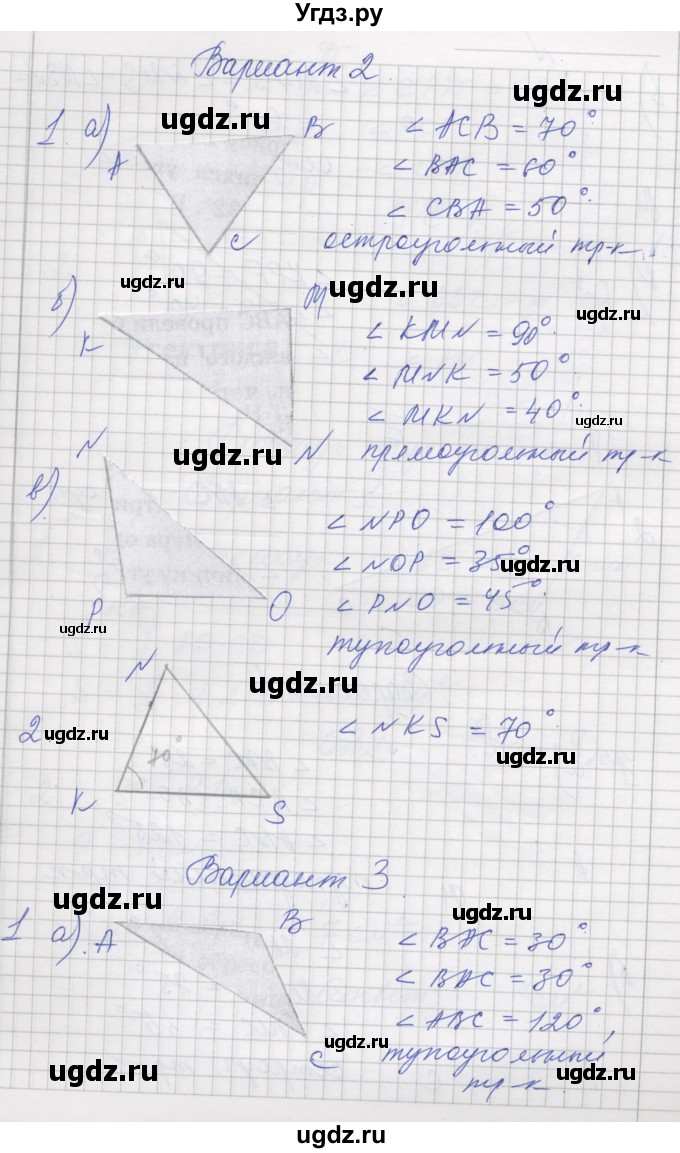 Угдз.ру
Вариант 2.
ugdz.ru
1. а) A B ∠ACB = 70°.
ugdz.ru
∠BAC = 60°
ugdz.ru
C ∠CBA = 50°.
ugdz.ru
остроугольный тр-к.
ugdz.ru ugdz.ru
б) K M ∠KMN = 90°.
ugdz.ru
∠MNK = 50°.
∠MKN = 40°.
ugdz.ru
ugdz.ru
N прямоугольный тр-к
в) N P O ∠NPO = 100°
∠NOP = 35°
ugdz.ru
∠PNO = 45°.
ugdz.ru
тупоугольный тр-к
ugdz.ru
2. N K S 70° ∠NKS = 70°.
ugdz.ru
ugdz.ru
Вариант 3
ugdz.ru
ugdz.ru
1 а). A B ∠BAC = 30°
∠BAC = 30°
C ∠ABC = 120°,
ugdz.ru
тупоугольный
ugdz.ru
тр-к.
ugdz.ru
ugdz.ru